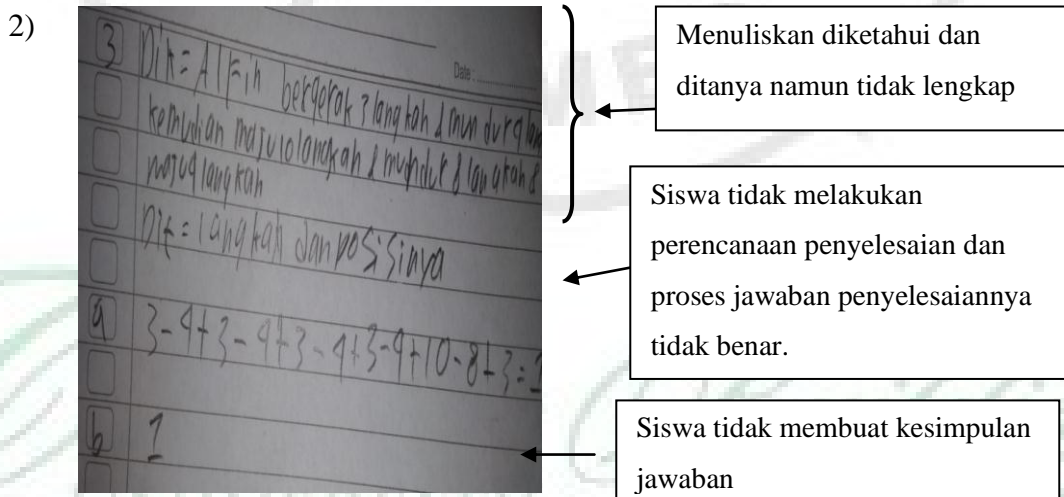 2)
Date:
3 Dik = Alfin bergerak 3 langkah & mundur 4
kemudian maju 10 langkah & mundur 8 langkah &
langkah
Dit = langkah dan posisinya
a 3-4+3-4+3-4+3-4+10-8+3=
b 1
Menuliskan diketahui dan
ditanya namun tidak lengkap
Siswa tidak melakukan
perencanaan penyelesaian dan
proses jawaban penyelesaiannya
tidak benar.
Siswa tidak membuat kesimpulan
jawaban